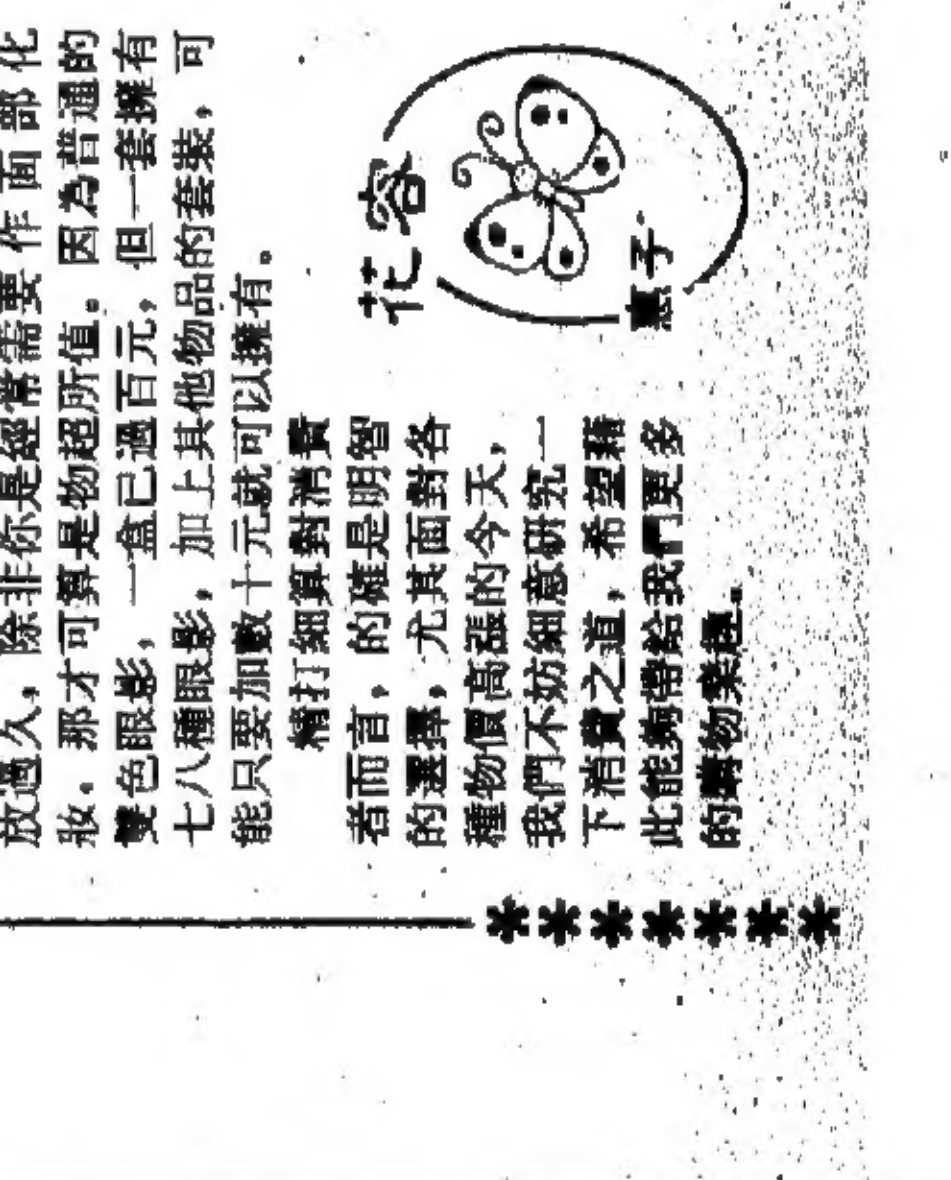 放過久，除非你是經常需要作面部化
妝。那才可算是物超所值。因為普通的
雙色眼影，一盒已過百元，但一套擁有
七八種眼影，加上其他物品的套裝，可
能只要加數十元就可以擁有。
精打細算對消費
者而言，的確是明智
的選擇，尤其面對各
種物價高漲的今天，
我們不妨細意研究一
下消費之道，希望藉
此能夠帶給我們更多
的購物樂趣。
花容
子
*******